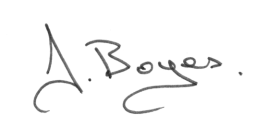 J. Boyes.